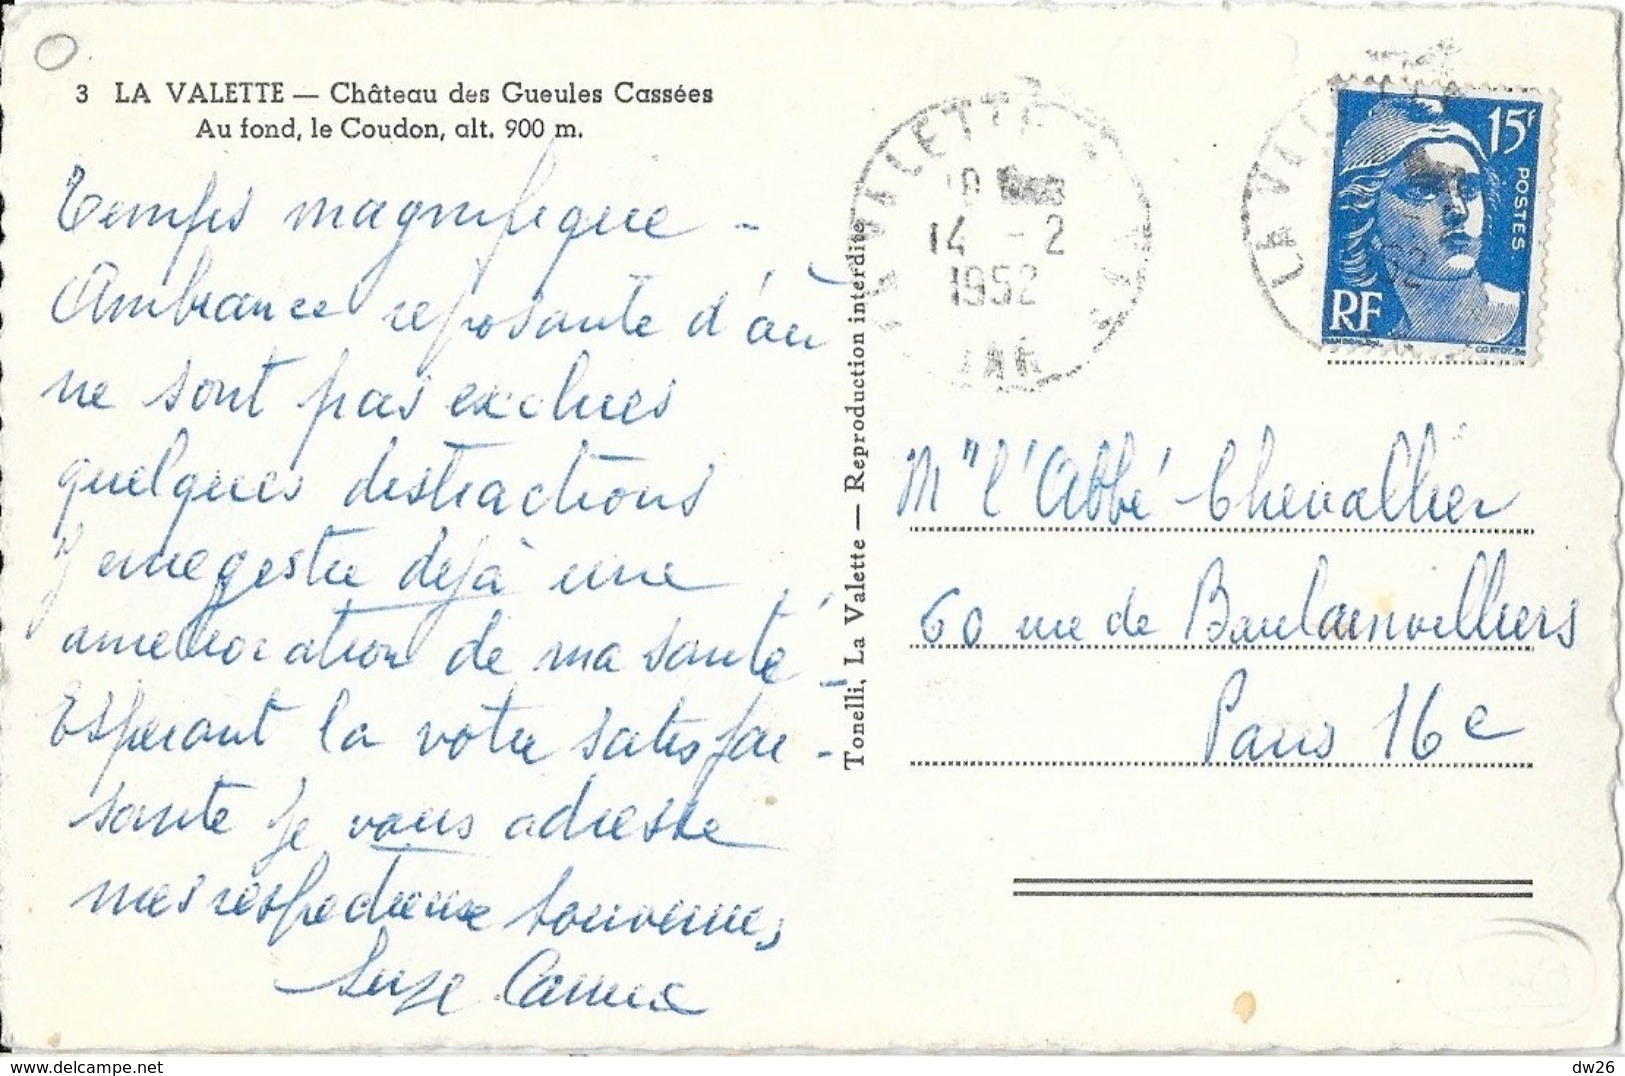 3 LA VALETTE — Château des Gueules Cassées
Au fond, le Coudon, alt. 900 m.
Temps magnifique -
Ambiance reposante d'où
ne sont pas exclues
quelques distractions
J'enregistre déjà une
amélioration de ma santé -
Espérant la votre satisfai-
sante je vous adresse
mes respectueux souvenirs
Tonelli, La Valette — Reproduction interdite
LA VALETTE
14 - 2
1952
VAR
LA VAL
15F
POSTES
RF
Mr l'Abbé Chevallier
60 rue de Boulainvilliers
Paris 16e
dw26